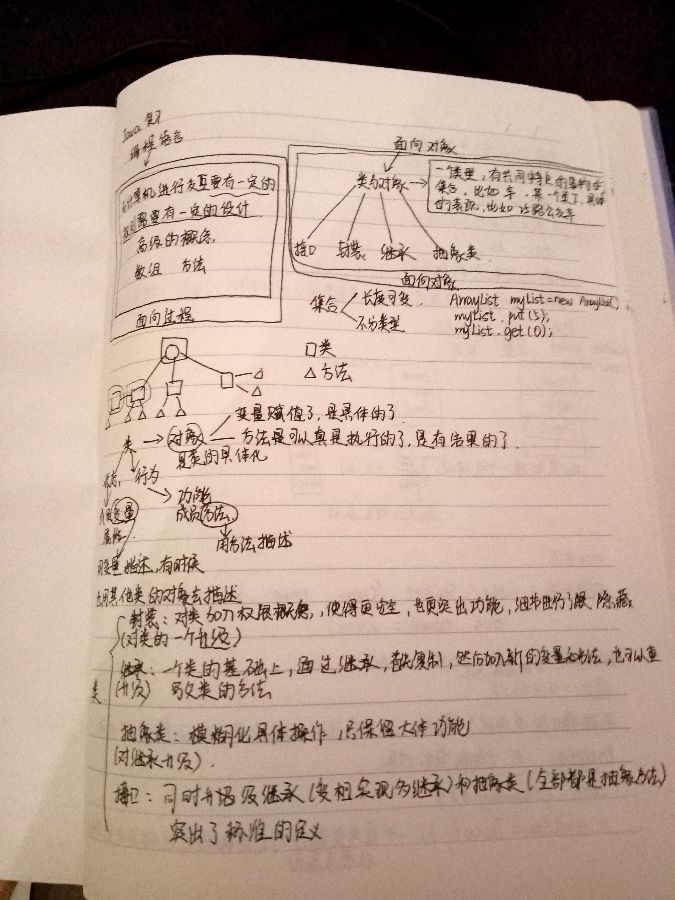 Java 复习
编程语言
与计算机进行交互要有一定的
规则需要有一定的设计
高级的概念,
数组 方法
面向过程
面向对象
类与对象
一个类型,有共同特点的事物的
集合,比如车,某一个类了,具体
的表现,比如 公交车
接口 封装 继承 抽象类
面向对象
集合 长度可变. ArrayList myList=new ArrayList()
不分类型 myList.put(5);
myList.get(0);
□类
△方法
变量赋值了,是具体的了
类 → 对象 方法是可以真是执行的了,是有结果的了.
是类的具体化
状态, 行为
功能
变量 成员方法
属性.
用方法描述
用变量描述,有时候
也用其他类的对象去描述
封装:对类加入权限概念,使得更安全,也更突出功能,细节进行了 隐藏,
(对类的一个升级)
类
继承:一个类的基础上,通过继承, 复制,然后加入新的变量和方法,也可以重
(升级) 写父类的方法
抽象类:模糊化具体操作,只保留大体功能
(对继承升级).
接口:同时升级 继承(变相实现多继承)和抽象类(全部都是抽象方法)
突出了标准的定义